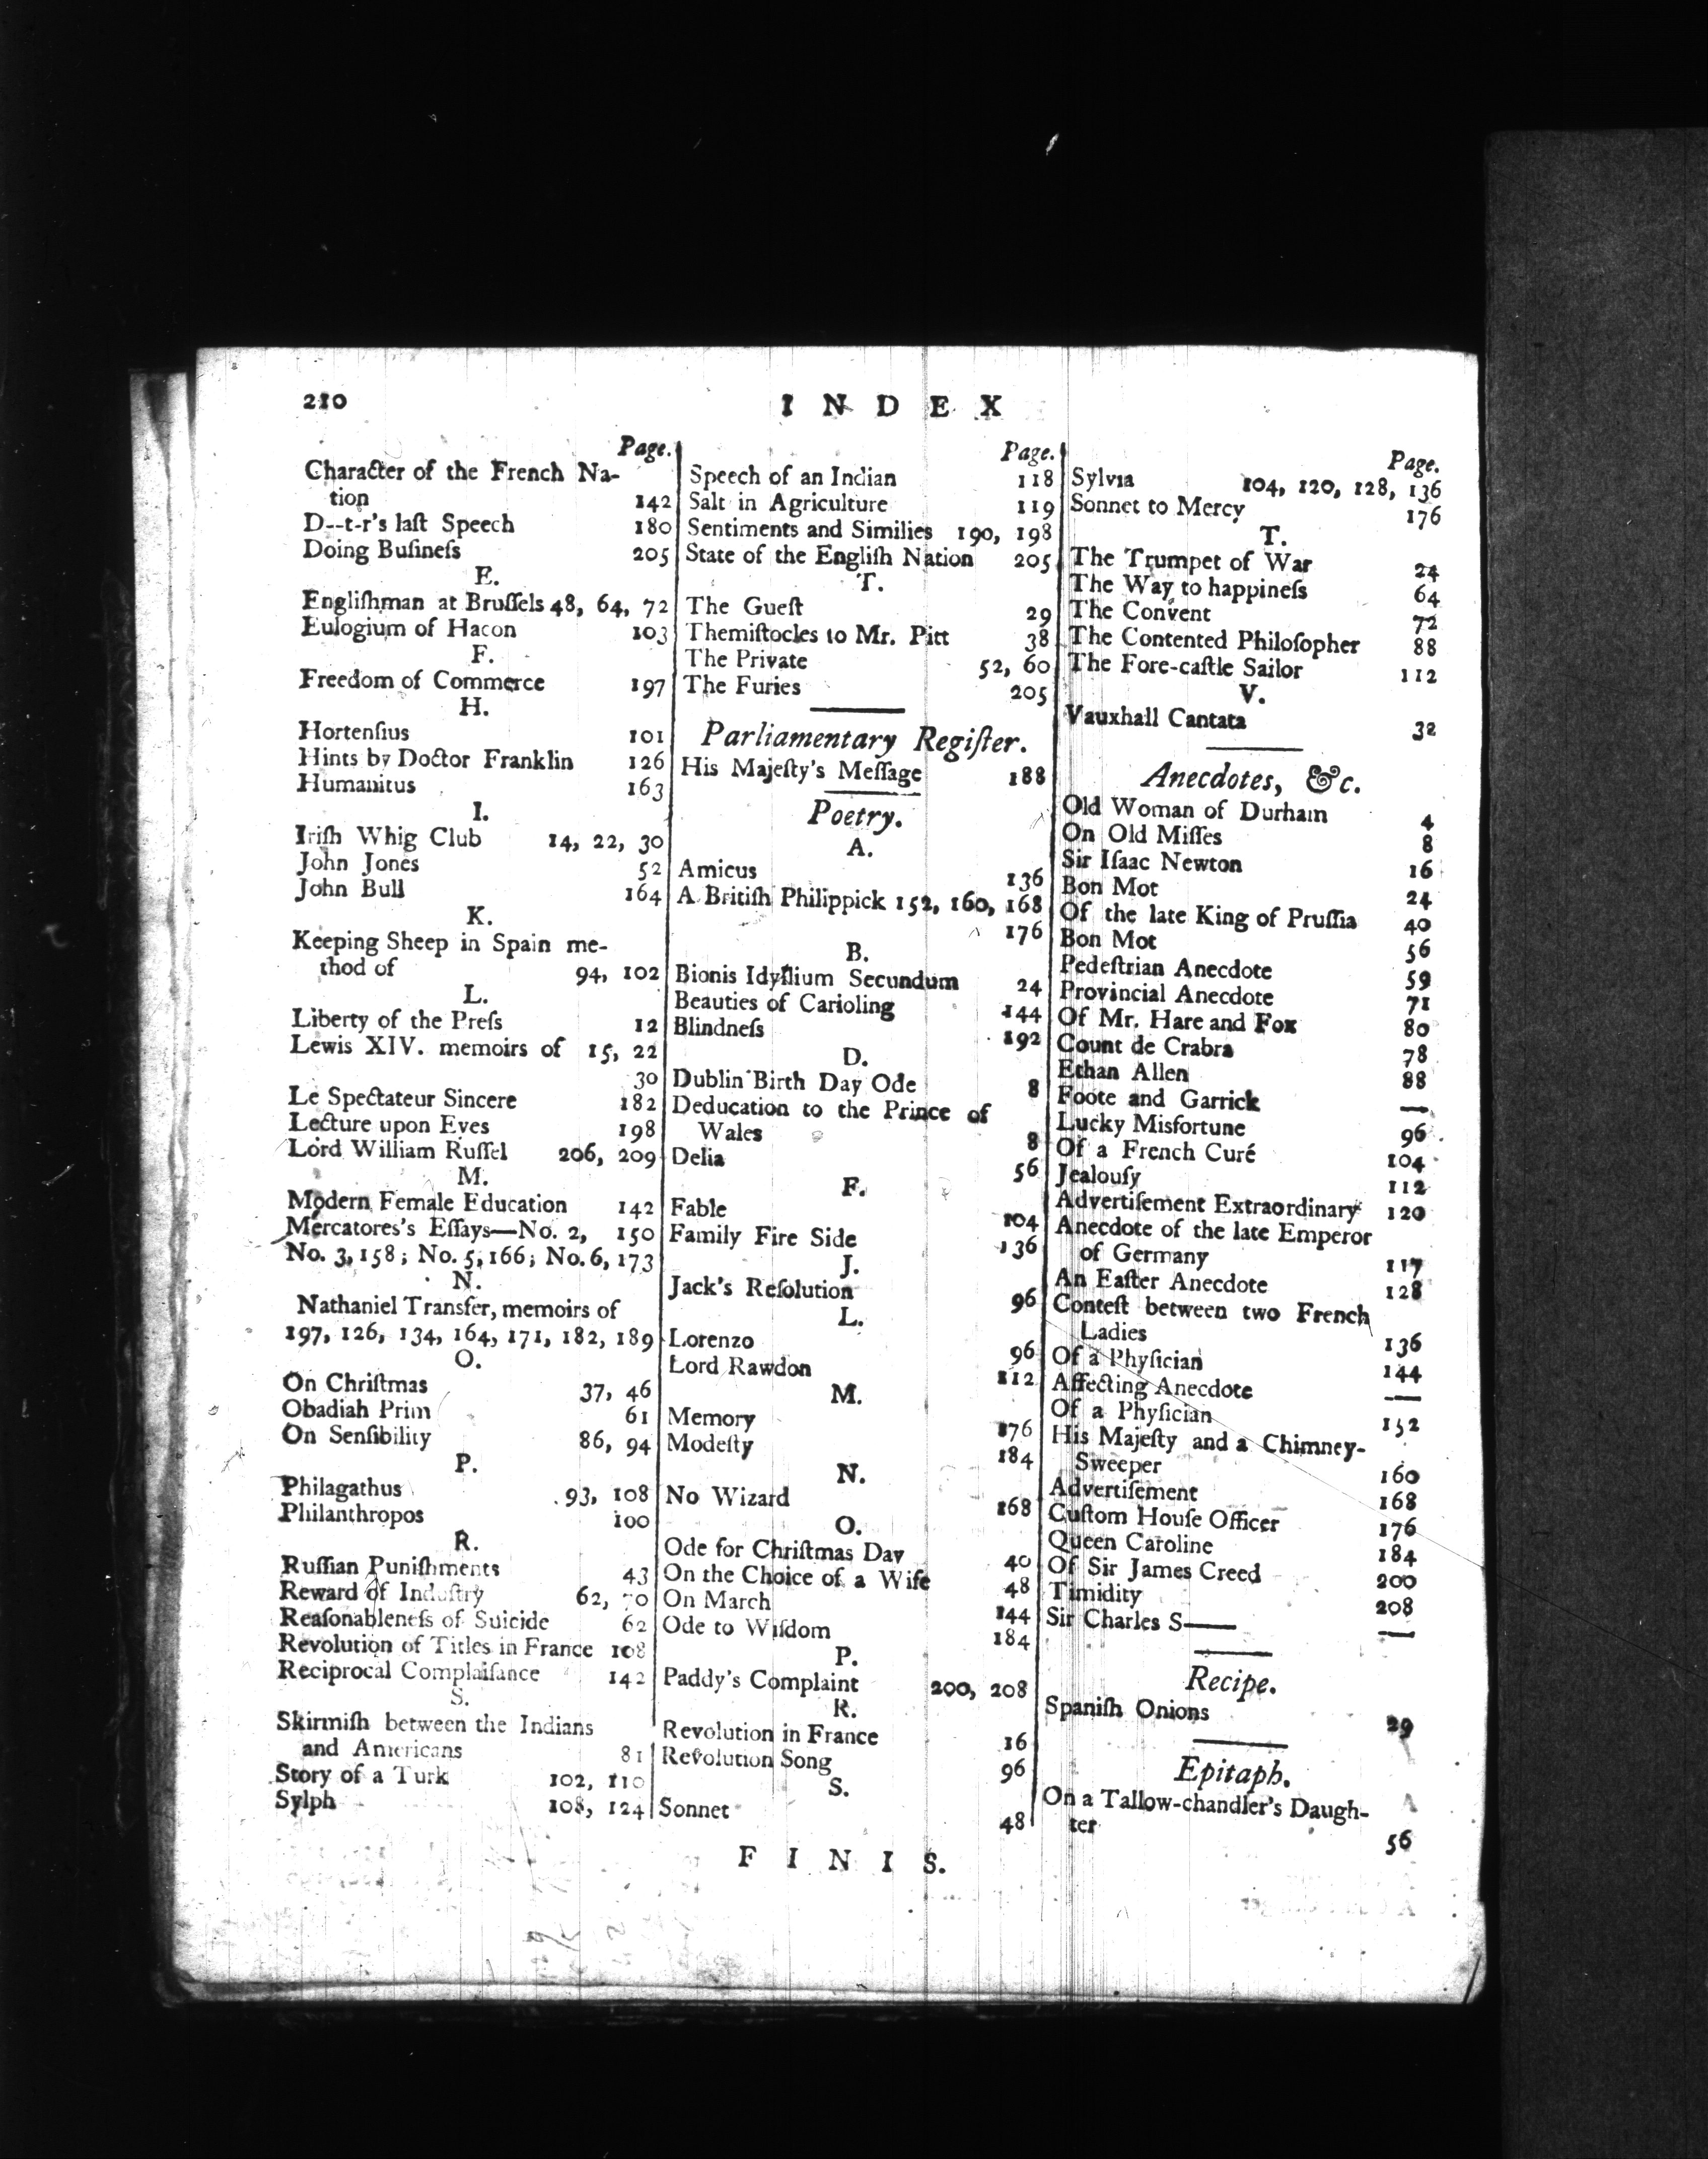 210
INDEX
Page.
Character of the French Na-
tion 142
D--t-r's laſt Speech 180
Doing Buſineſs 205
E.
Engliſhman at Bruſſels 48, 64, 72
Eulogium of Hacon 103
F.
Freedom of Commerce 197
H.
Hortenſius 101
Hints by Doctor Franklin 126
Humanitus 163
I.
Iriſh Whig Club 14, 22, 30
John Jones 52
John Bull 164
K.
Keeping Sheep in Spain me-
thod of 94, 102
L.
Liberty of the Preſs 12
Lewis XIV. memoirs of 15, 22
30
Le Spectateur Sincere 182
Lecture upon Eyes 198
Lord William Ruſſel 206, 209
M.
Modern Female Education 142
Mercatores's Eſſays—No. 2, 150
No. 3, 158; No. 5, 166; No. 6, 173
N.
Nathaniel Transfer, memoirs of
197, 126, 134, 164, 171, 182, 189
O.
On Chriſtmas 37, 46
Obadiah Prim 61
On Senſibility 86, 94
P.
Philagathus 93, 108
Philanthropos 100
R.
Ruſſian Puniſhments 43
Reward of Induſtry 62, 70
Reaſonableneſs of Suicide 62
Revolution of Titles in France 108
Reciprocal Complaiſance 142
S.
Skirmiſh between the Indians
and Americans 81
Story of a Turk 102, 110
Sylph 108, 124
Page.
Speech of an Indian 118
Salt in Agriculture 119
Sentiments and Similies 190, 198
State of the Engliſh Nation 205
T.
The Gueſt 29
Themiſtocles to Mr. Pitt 38
The Private 52, 60
The Furies 205
Parliamentary Regiſter.
His Majeſty's Meſſage 188
Poetry.
A.
Amicus 136
A Britiſh Philippick 152, 160, 168
176
B.
Bionis Idyllium Secundum 24
Beauties of Carioling 144
Blindneſs 192
D.
Dublin Birth Day Ode 8
Deducation to the Prince of
Wales 8
Delia 56
F.
Fable 104
Family Fire Side 136
J.
Jack's Reſolution 96
L.
Lorenzo 96
Lord Rawdon 112
M.
Memory 176
Modeſty 184
N.
No Wizard 168
O.
Ode for Chriſtmas Day 40
On the Choice of a Wife 48
On March 144
Ode to Wiſdom 184
P.
Paddy's Complaint 200, 208
R.
Revolution in France 16
Revolution Song 96
S.
Sonnet 48
Page.
Sylvia 104, 120, 128, 136
Sonnet to Mercy 176
T.
The Trumpet of War 24
The Way to happineſs 64
The Convent 72
The Contented Philoſopher 88
The Fore-caſtle Sailor 112
V.
Vauxhall Cantata 32
Anecdotes, &c.
Old Woman of Durham 4
On Old Miſſes 8
Sir Iſaac Newton 16
Bon Mot 24
Of the late King of Pruſſia 40
Bon Mot 56
Pedeſtrian Anecdote 59
Provincial Anecdote 71
Of Mr. Hare and Fox 80
Count de Crabra 78
Ethan Allen 88
Foote and Garrick —
Lucky Misfortune 96
Of a French Curé 104
Jealouſy 112
Advertiſement Extraordinary 120
Anecdote of the late Emperor
of Germany 117
An Eaſter Anecdote 128
Conteſt between two French
Ladies 136
Of a Phyſician 144
Affecting Anecdote —
Of a Phyſician 152
His Majeſty and a Chimney-
Sweeper 160
Advertiſement 168
Cuſtom Houſe Officer 176
Queen Caroline 184
Of Sir James Creed 200
Timidity 208
Sir Charles S—— —
Recipe.
Spaniſh Onions 29
Epitaph.
On a Tallow-chandler's Daugh-
ter 56
FINIS.